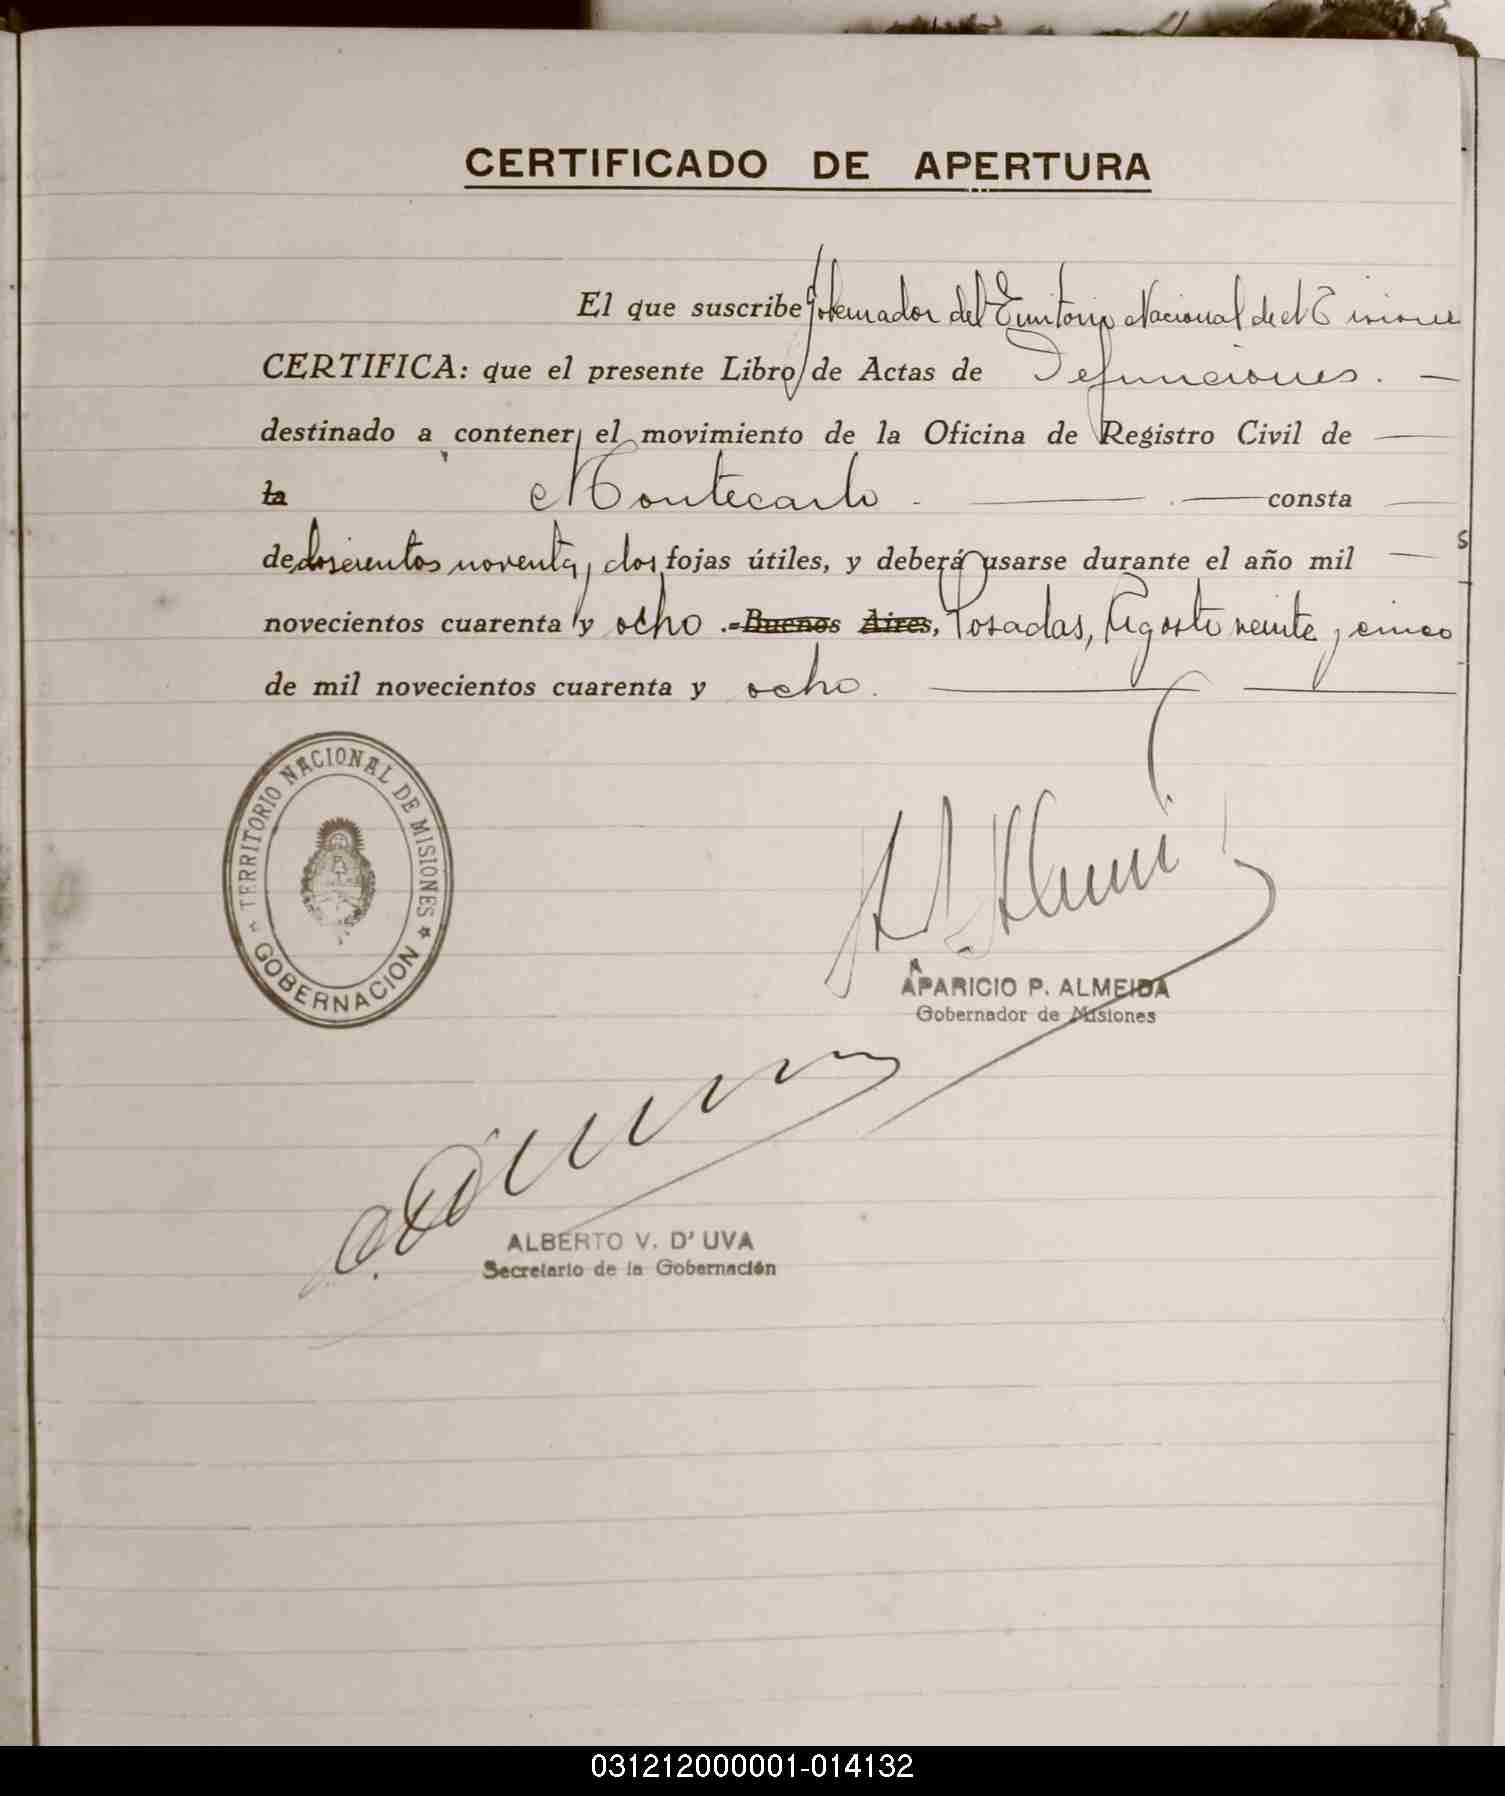 CERTIFICADO DE APERTURA
El que suscribe Gobernador del Territorio Nacional de Misiones
CERTIFICA: que el presente Libro de Actas de Defunciones. —
destinado a contener el movimiento de la Oficina de Registro Civil de —
la Montecarlo. — consta
de doscientos noventa y dos fojas útiles, y deberá usarse durante el año mil —
novecientos cuarenta y ocho .-Buenos Aires, Posadas, Agosto veinte y cinco
de mil novecientos cuarenta y ocho. —
TERRITORIO NACIONAL DE MISIONES
GOBERNACION
APARICIO P. ALMEIDA
Gobernador de Misiones
ALBERTO V. D'UVA
Secretario de la Gobernación
031212000001-014132